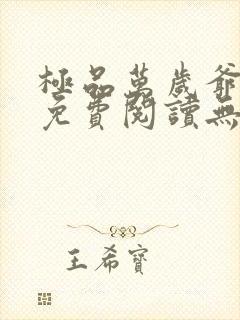 極品萬歲爺
免費閱讀無
王希寶